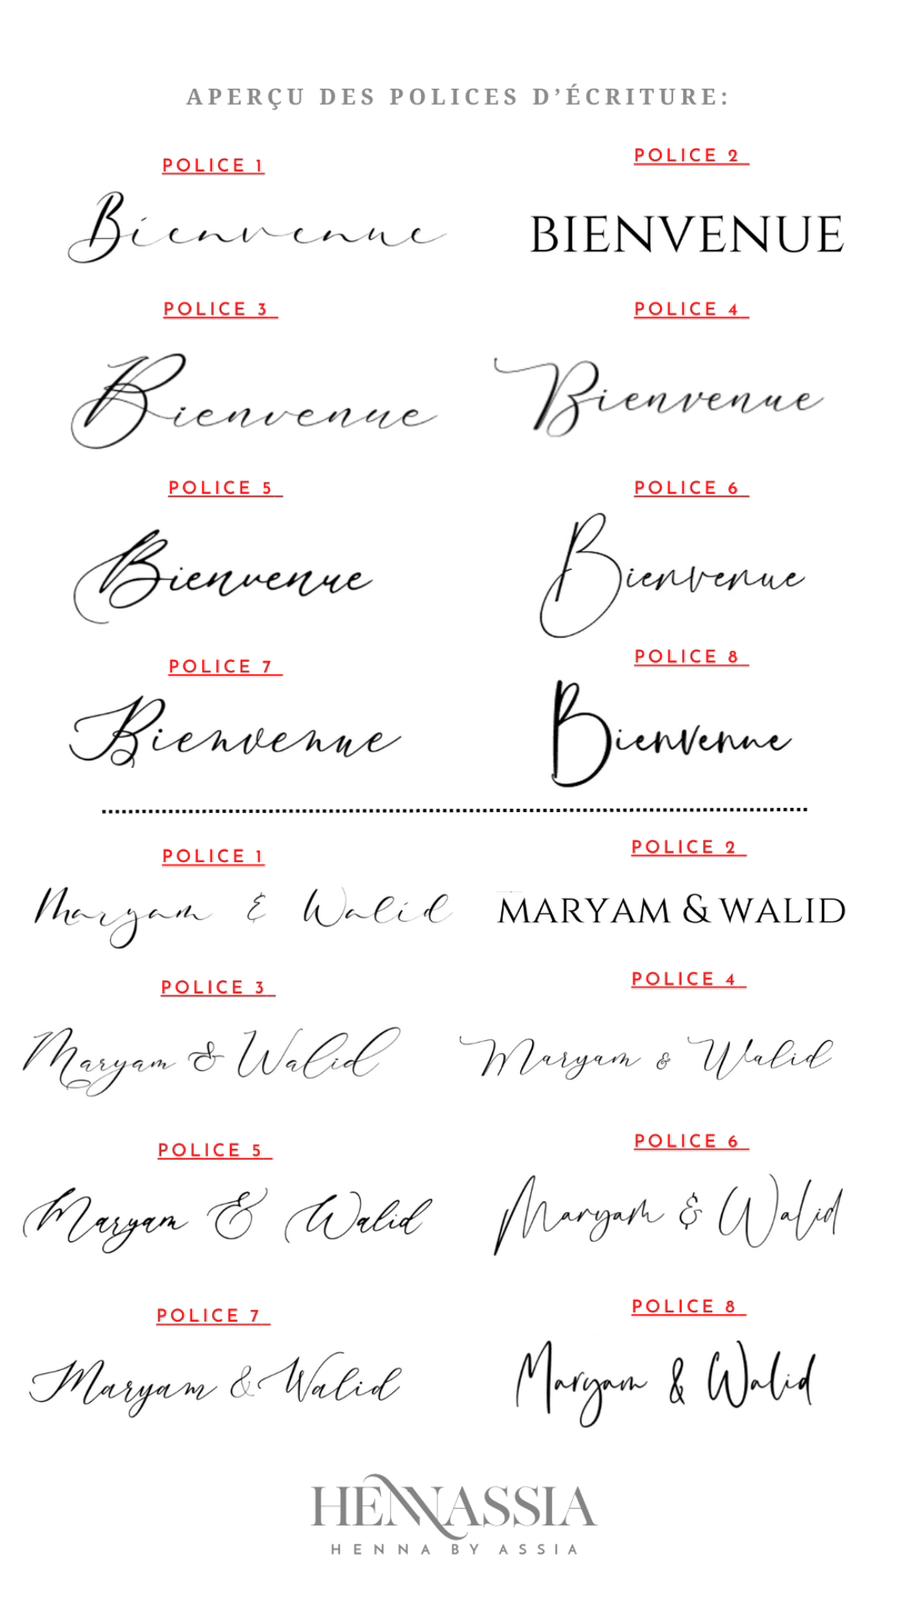 APERÇU DES POLICES D’ÉCRITURE:
POLICE 1
POLICE 2
Bienvenue
BIENVENUE
POLICE 3
POLICE 4
Bienvenue
Bienvenue
POLICE 5
POLICE 6
Bienvenue
Bienvenue
POLICE 7
POLICE 8
Bienvenue
Bienvenue
POLICE 1
POLICE 2
Maryam & Walid
MARYAM & WALID
POLICE 3
POLICE 4
Maryam & Walid
Maryam & Walid
POLICE 5
POLICE 6
Maryam & Walid
Maryam & Walid
POLICE 7
POLICE 8
Maryam & Walid
Maryam & Walid
HENNASSIA
HENNA BY ASSIA